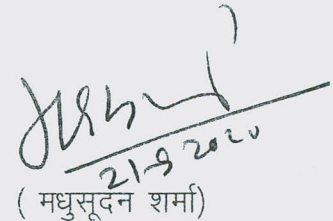 21-9 2020
( मधुसूदन शर्मा)